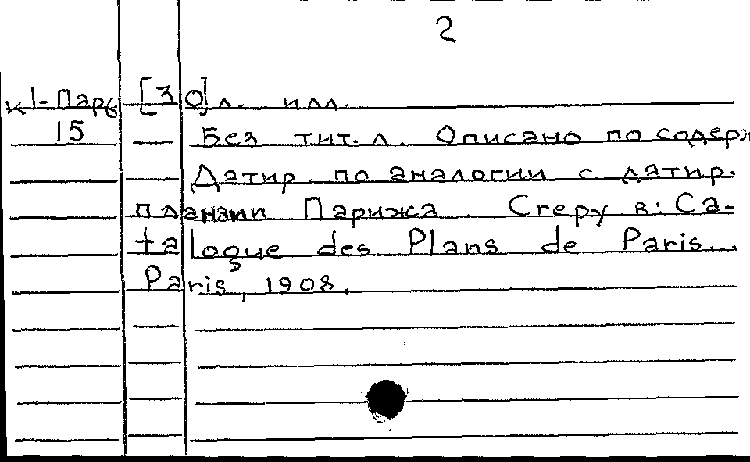 2
к1-Пар6 [30] л. илл.
15 — Без тит. л. Описано по содерж
Датир. по аналогии с датир.
планами Парижа Crepy в: Ca-
talogue des Plans de Paris...
Paris, 1908.